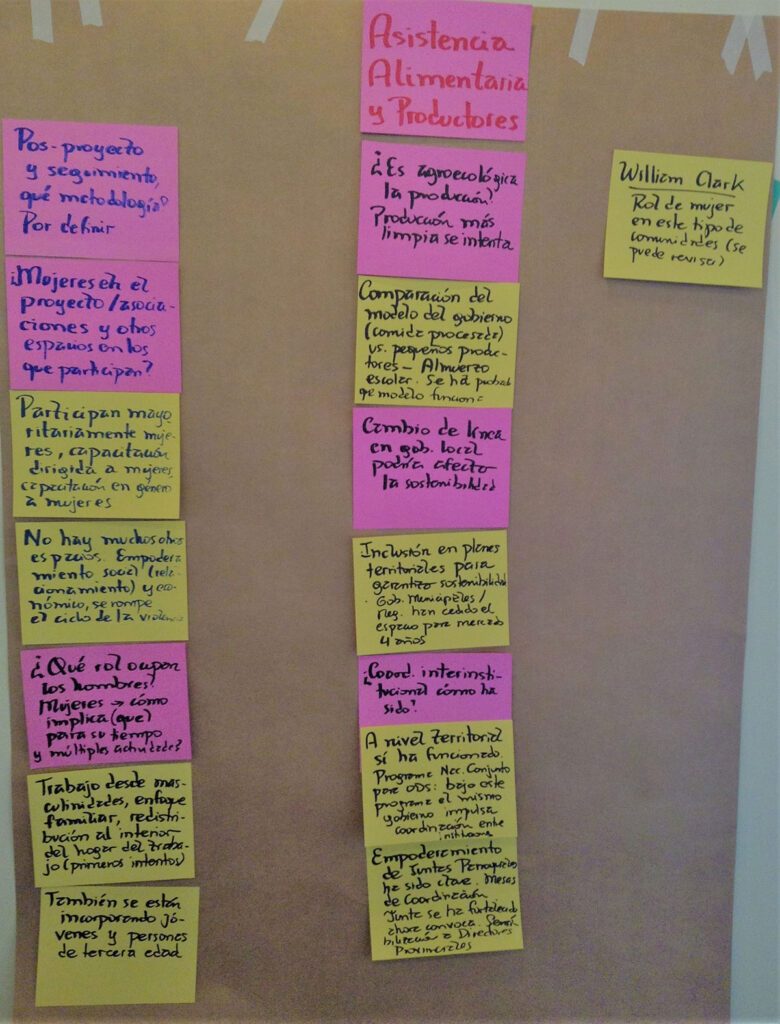 Asistencia
Alimentaria
y Productores
Pos-proyecto
y seguimiento,
qué metodología?
Por definir
¿Mujeres en el
proyecto/asocia-
ciones y otros
espacios en los
que participan?
Participan mayo
ritariamente muje-
res, capacitación
dirigida a mujeres,
capacitación en género
a mujeres
No hay muchos otros
espacios. Empodera
miento social (rela-
cionamiento) y eco-
nómico, se rompe
el ciclo de la violencia
¿Qué rol ocupan
los hombres?
Mujeres → cómo
implica (que)
para su tiempo
y múltiples actividades?
Trabajo desde mas-
culinidades, enfoque
familiar, redistri-
bución al interior
del hogar del traba-
jo (primeros intentos)
También se están
incorporando jó-
venes y personas
de tercera edad
¿Es agroecológica
la producción?
Producción más
limpia se intenta
Comparación del
modelo del gobierno
(comida procesada)
vs. pequeños produc-
tores - Almuerzo
escolar. Se ha probado
que modelo funciona
Cambio de línea
en gob. local
podría afectar
la sostenibilidad
Inclusión en planes
territoriales para
garantizar sostenibilidad
. Gob. Municipales/
Reg. han cedido el
espacio para mercado
4 años
¿Coord. interinsti-
tucional cómo ha
sido?
A nivel territorial
sí ha funcionado.
Programa Nac. Conjunto
para ODS: bajo este
programa el mismo
gobierno impulsa
coordinación entre
Empoderamiento
de Juntas Parroquiales
ha sido clave. Mesas
de Coordinación
Junta se ha fortalecido
ahora convoca. Sensi-
bilización a Directores
Provinciales
William Clark
Rol de mujer
en este tipo de
comunidades (se
puede revisar)